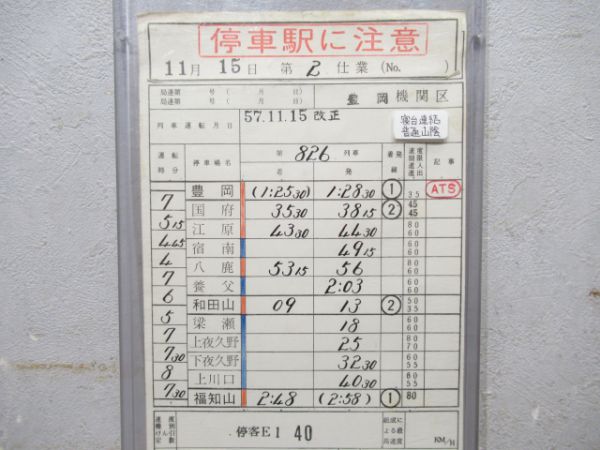 停車駅に注意
11月 15日 第 2 仕業 (No. )
局達第 号 ( 月 日)
局達第 号 ( 月 日)
豊岡機関区
列車運転月日
57.11.15 改正
寝台連結
普通山陰
運転時分 停車場名 第 826 列車 着 発 着発線 速度制限 記事
豊岡 (1:25 30) 1:28 30 ① 35 ATS
7 国府 35 30 38 15 ② 45 45
5 15 江原 43 30 44 30 80 60
4 45 宿南 49 15 60 60
4 八鹿 53 15 56 60 60
7 養父 2:03 60 60
6 和田山 09 13 ② 50 35
5 梁瀬 18 60 60
7 上夜久野 25 80 70
7 30 下夜久野 32 30 55 60
8 上川口 40 30 60 60
7 30 福知山 2:48 (2:58) ① 80
停客E1 40
KM/H